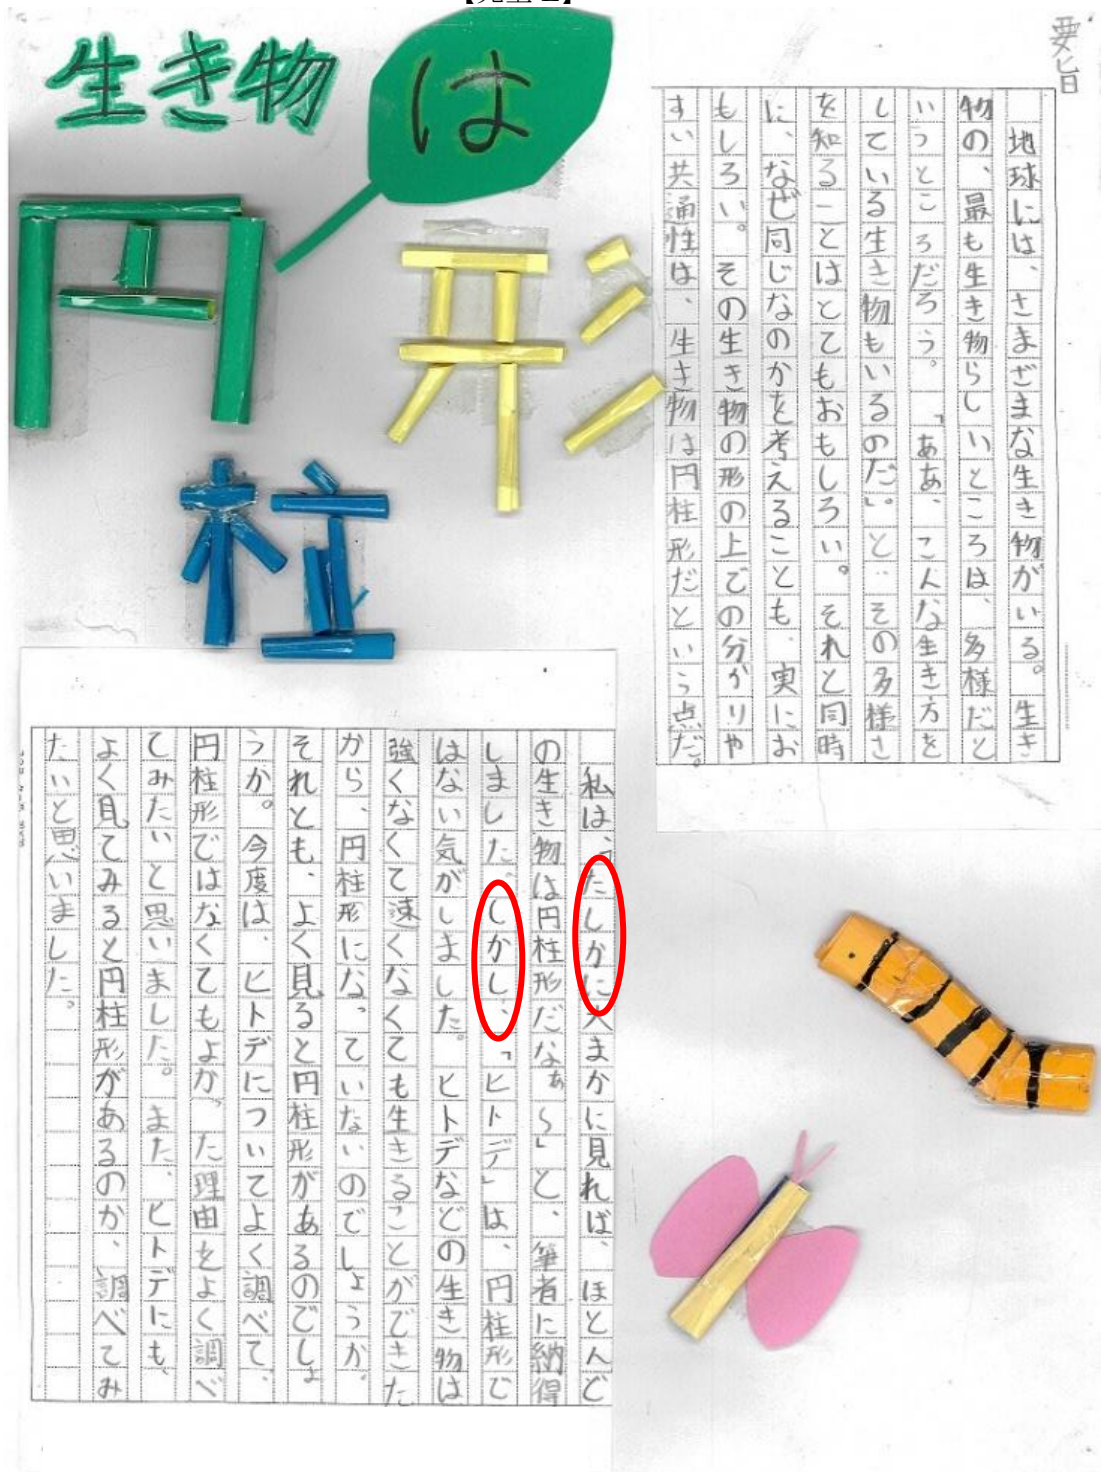 生き物は
円柱形
要旨
地球には、さまざまな生き物がいる。生き
物の、最も生き物らしいところは、多様だと
いうところだろう。「ああ、こんな生き方を
している生き物もいるのだ。」と‥その多様さ
を知ることはとてもおもしろい。それと同時
に、なぜ同じなのかを考えることも、実にお
もしろい。その生き物の形の上での分かりや
すい共通性は、生き物は円柱形だという点だ。
私は、「たしかに大まかに見れば、ほとんど
の生き物は円柱形だなぁ〜」と、筆者に納得
しました。しかし、「ヒトデ」は、円柱形で
はない気がしました。ヒトデなどの生き物は
強くなくて速くなくても生きることができた
から、円柱形になっていないのでしょうか。
それとも、よく見ると円柱形があるのでしょ
うか。今度は、ヒトデについてよく調べて、
円柱形ではなくてもよかった理由をよく調べ
てみたいと思いました。また、ヒトデにも、
よく見てみると円柱形があるのか、調べてみ
たいと思いました。